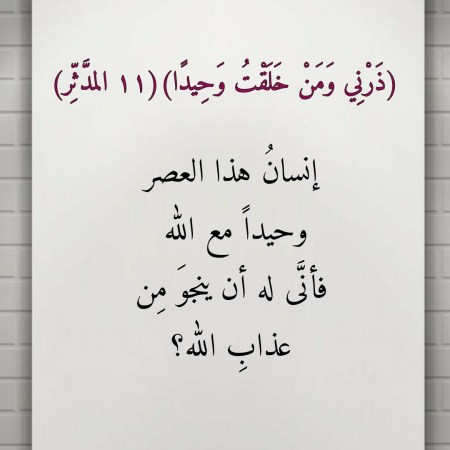 (ذَرْنِي وَمَنْ خَلَقْتُ وَحِيدًا) (١١ المدَّثِّر)
إنسانُ هذا العصر
وحيداً مع الله
فأنَّى له أن ينجوَ مِن
عذابِ الله؟